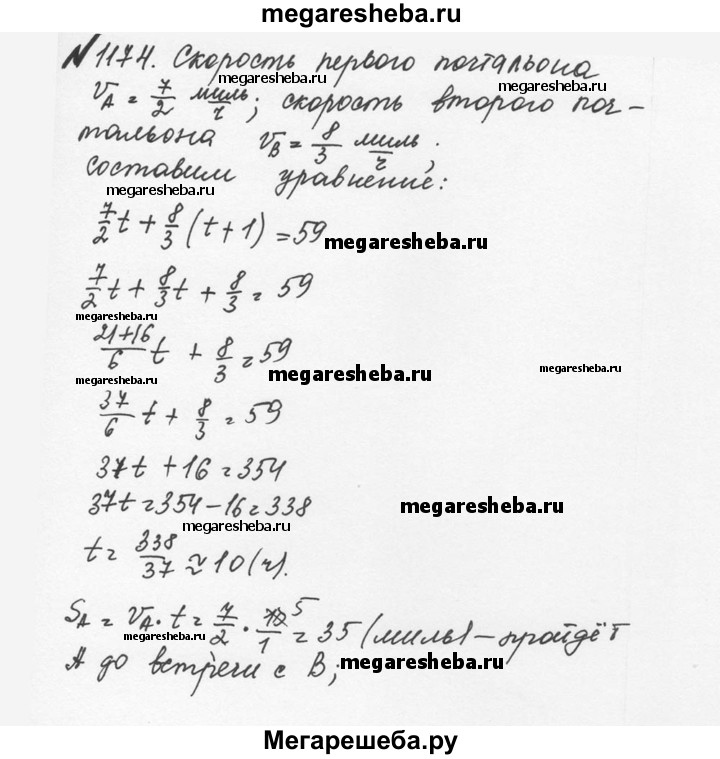 megaresheba.ru
№1174. Скорость первого почтальона
megaresheba.ru
v_A = 7/2 миль/ч; скорость второго поч-
megaresheba.ru
тальона v_B = 8/3 миль/ч;
составим уравнение:
megaresheba.ru
7/2 t + 8/3 (t+1) = 59
megaresheba.ru
7/2 t + 8/3 t + 8/3 = 59
megaresheba.ru
(21+16)/6 t + 8/3 = 59
megaresheba.ru
megaresheba.ru
megaresheba.ru
37/6 t + 8/3 = 59
37t + 16 = 354
37t = 354 - 16 = 338
megaresheba.ru
megaresheba.ru
t = 338/37 ≈ 10 (ч).
S_A = v_A · t = 7/2 · 10/1 5 = 35 (миль) - пройдёт
megaresheba.ru
А до встречи с В;
megaresheba.ru
Мегарешеба.ру